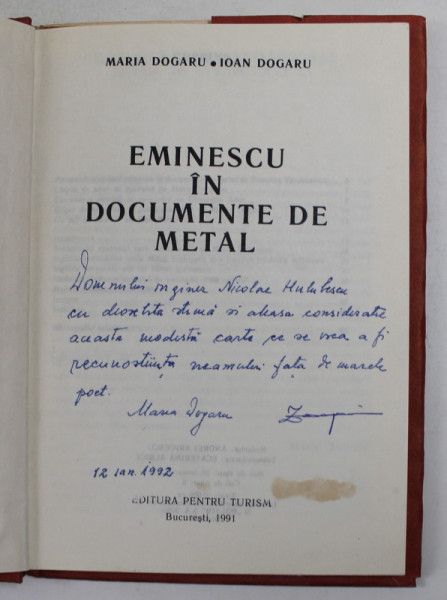 MARIA DOGARU • IOAN DOGARU
EMINESCU
ÎN
DOCUMENTE DE
METAL
Domnului inginer Nicolae Hulubescu
cu deosebita stimă si aleasa consideratie
aceasta modestă carte ce se vrea a fi
recunostiința neamului față de marele
poet.
Maria Dogaru
12 ian. 1992
EDITURA PENTRU TURISM
București, 1991